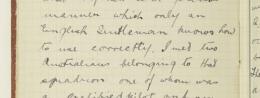 manner which only an
English Gentleman knows how
to use correctly. I met two
Australians belonging to that
squadron one of whom was
a qualified pilot and